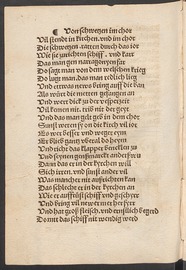 ¶ Von schwetzen im chor
Vil stendt in kirchen, vnd im chor
Die schwetzen, ratten durch das ior
Wie sie zurichten schiff, vnd karr
Das man gen narragonyen far
Do sagt man von dem welschen krieg
Do lugt man, das man redlich lieg
Vnd etwas news bring auff die ban
Als würt die metten gefangen an
Vnd wert dick zu der vesperzeit
Vil kemen nit, trib nit der geyt
Vnd das man gelt geb in dem chor
Sunst weren sy on die kirch vil ior
Es wer besser vnd weger eym
Er blib gantz vberal do heym
Vnd richt das klapper bencklin zu
Vnd synen genßmarckt anderßwu
Dann das er in der kirchen will
Sich irren, vnd sunst ander vil
Was mancher nit außrichten kan
Das schlecht er in der kyrchen an
Wie er auffrüst schiff vnd geschyrr
Vnd bring vil newer mer har fyr
Vnd hat groß fleiß, vnd ernstlich beperd
Do mit das schiff nit wendig werd